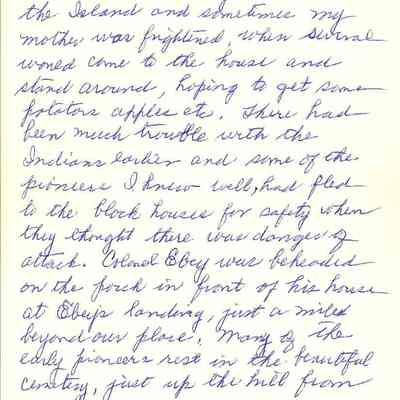 the Island and sometimes my
mother was frightened, when several
would come to the house and
stand around, hoping to get some
potatoes apples etc. There had
been much trouble with the
Indians earlier and some of the
pioneers I knew well, had fled
to the block houses for safety when
they thought there was danger of
attack. Colonel Ebey was beheaded
on the porch in front of his house
at Ebeys landing, just a mile
beyond our place. Many of the
early pioneers rest in the beautiful
cemetery, just up the hill from